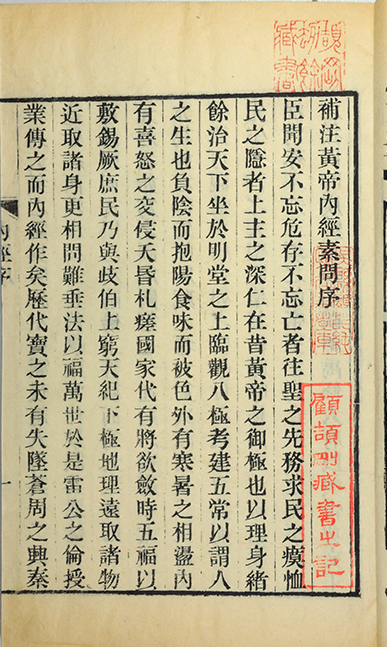 頡剛
劫餘
藏書
補注黃帝內經素問序
臣聞安不忘危存不忘亡者往聖之先務求民之瘼恤
民之隱者上主之深仁在昔黃帝之御極也以理身緒
餘治天下坐於明堂之上臨觀八極考建五常以謂人
之生也負陰而抱陽食味而被色外有寒暑之相盪內
有喜怒之交侵夭昏札瘥國家代有將欲斂時五福以
敷錫厥庶民乃與歧伯上窮天紀下極地理遠取諸物
近取諸身更相問難垂法以福萬世於是雷公之倫授
業傳之而內經作矣歷代寶之未有失墜蒼周之興秦
內經序
一
顧頡剛藏書之記